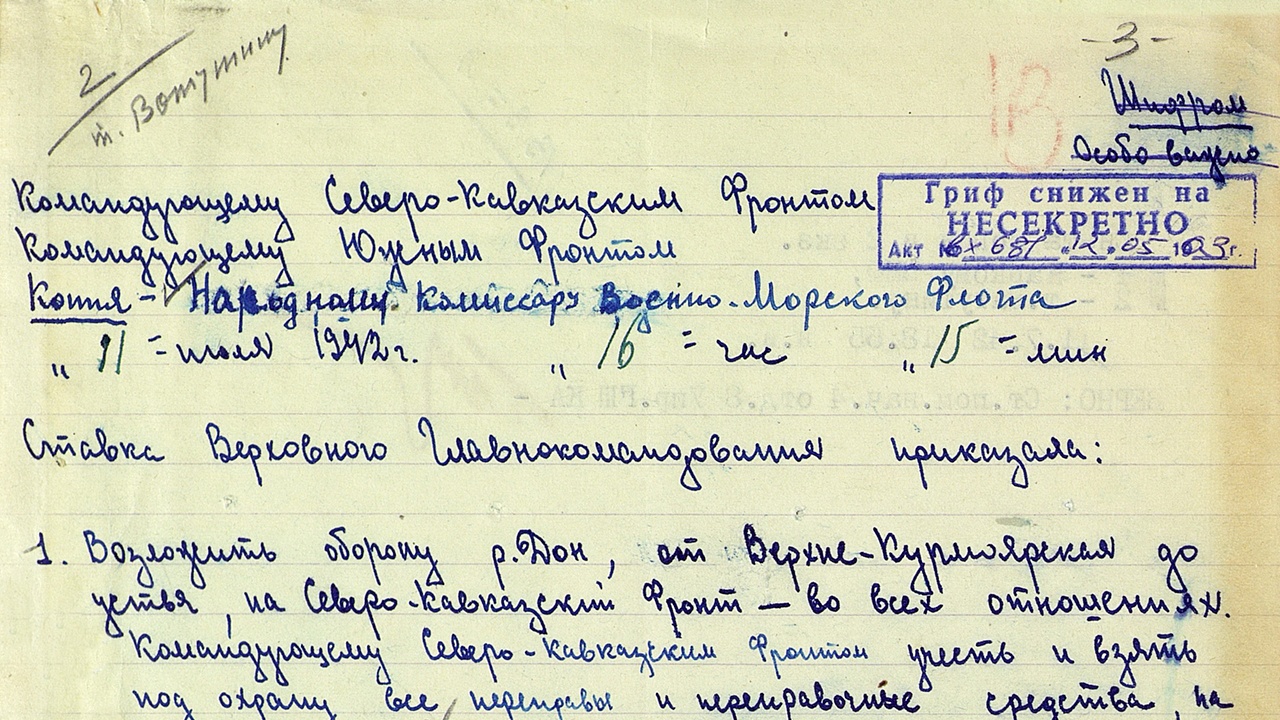 -3-
2
т. Ватутину
Шифром
Особо важно
Командующему Северо-Кавказским Фронтом
Гриф снижен на
НЕСЕКРЕТНО
Командующему Южным Фронтом
Акт № вх 681 "12.05 1923г.
Копия - Народному Комиссару Военно-Морского Флота
„ 11 "= июля 1942г. „ 16 "= час „ 15 "= мин
ВЕРНО: Ст.пом.нач.4 отд.8 Упр.ГШ КА -
Ставка Верховного Главнокомандования приказала:
1. Возложить оборону р.Дон, от Верхне-Курмоярская до
устья, на Северо-Кавказский Фронт — во всех отношениях.
Командующему Северо-Кавказским Фронтом учесть и взять
под охрану все переправы и переправочные средства, на